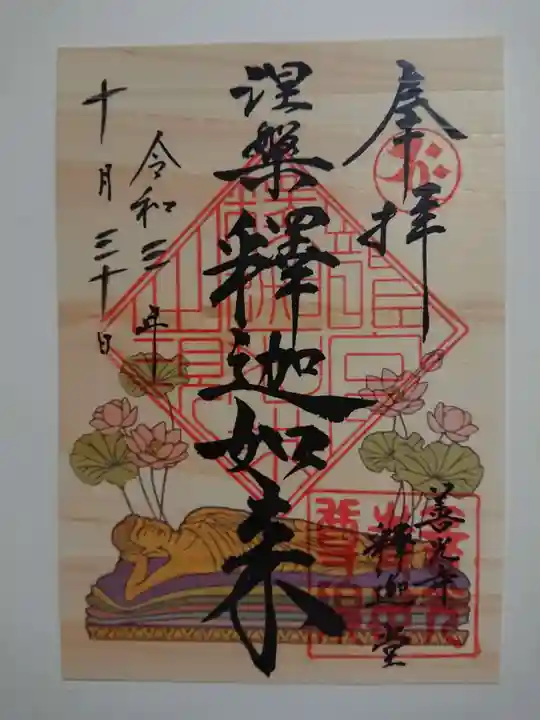 奉拝
涅槃釋迦如来
令和三年
十月三十日
善光寺
釋迦堂